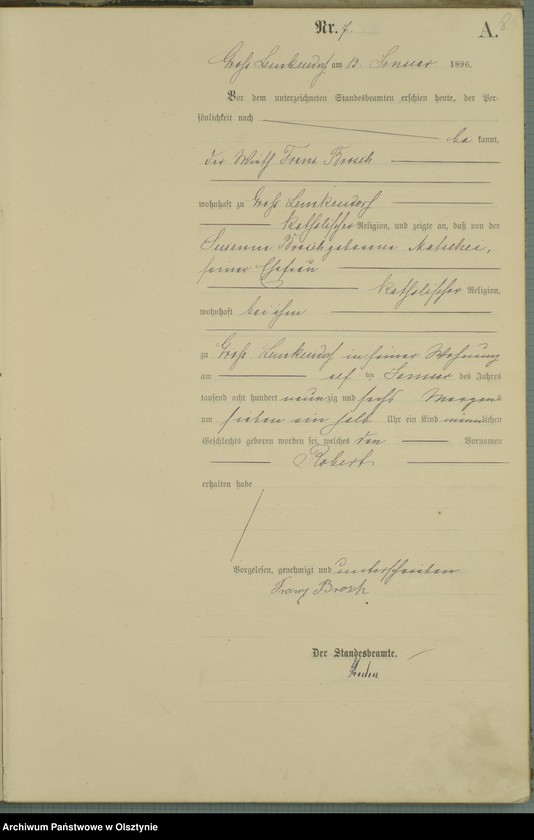 Nr. 7.
A. 8
Groß Lemkendorf am 13. Januar 1896.
Vor dem unterzeichneten Standesbeamten erschien heute, der Per-
sönlichkeit nach
be kannt,
der Wirth Franz Brosch
wohnhaft zu Groß Lemkendorf
katholischer Religion, und zeigte an, daß von der
Susanna Brosch geborene
seiner Ehefrau
katholischer Religion,
wohnhaft bei ihm
zu Groß Lemkendorf in seiner Wohnung
am elf ten Januar des Jahres
tausend acht hundert neunzig und sechs Morgens
um sieben ein halb Uhr ein Kind männlichen
Geschlechts geboren worden sei, welches den Vornamen
Robert
erhalten habe
Vorgelesen, genehmigt und unterschrieben
Franz Brosch
Der Standesbeamte.
Archiwum Państwowe w Olsztynie